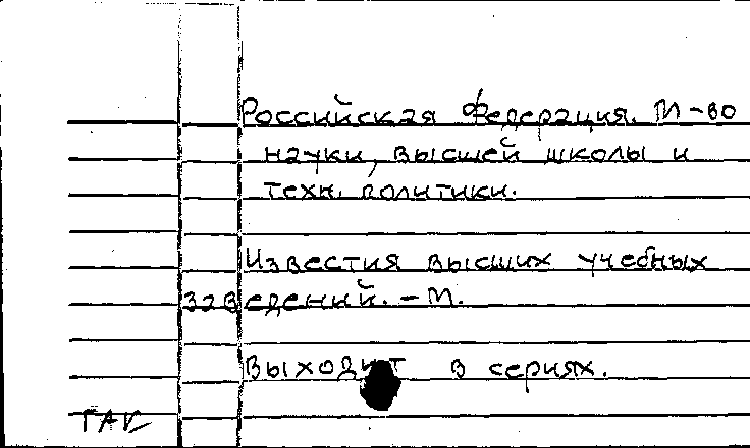 Российская Федерация. М-во
науки, высшей школы и
техн. политики.
Известия высших учебных
заведений. - М.
Выходит в сериях.